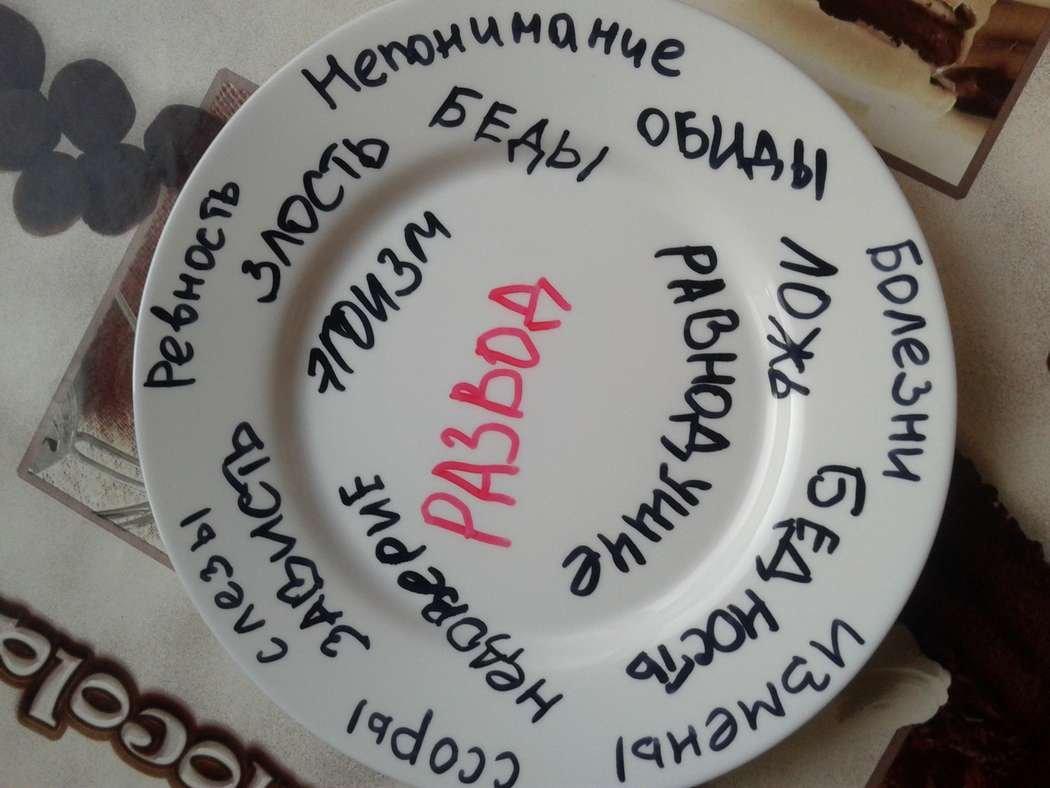 Непонимание
БЕДЫ
ОБИДЫ
Ревность
ЗЛОСТЬ
ЭГОИЗМ
РАВНОДУШИЕ
ЛОЖЬ
Болезни
РАЗВОД
слезы
ЗАВИСТЬ
НЕДОВЕРИЕ
БЕДНОСТЬ
Измены
ссоры